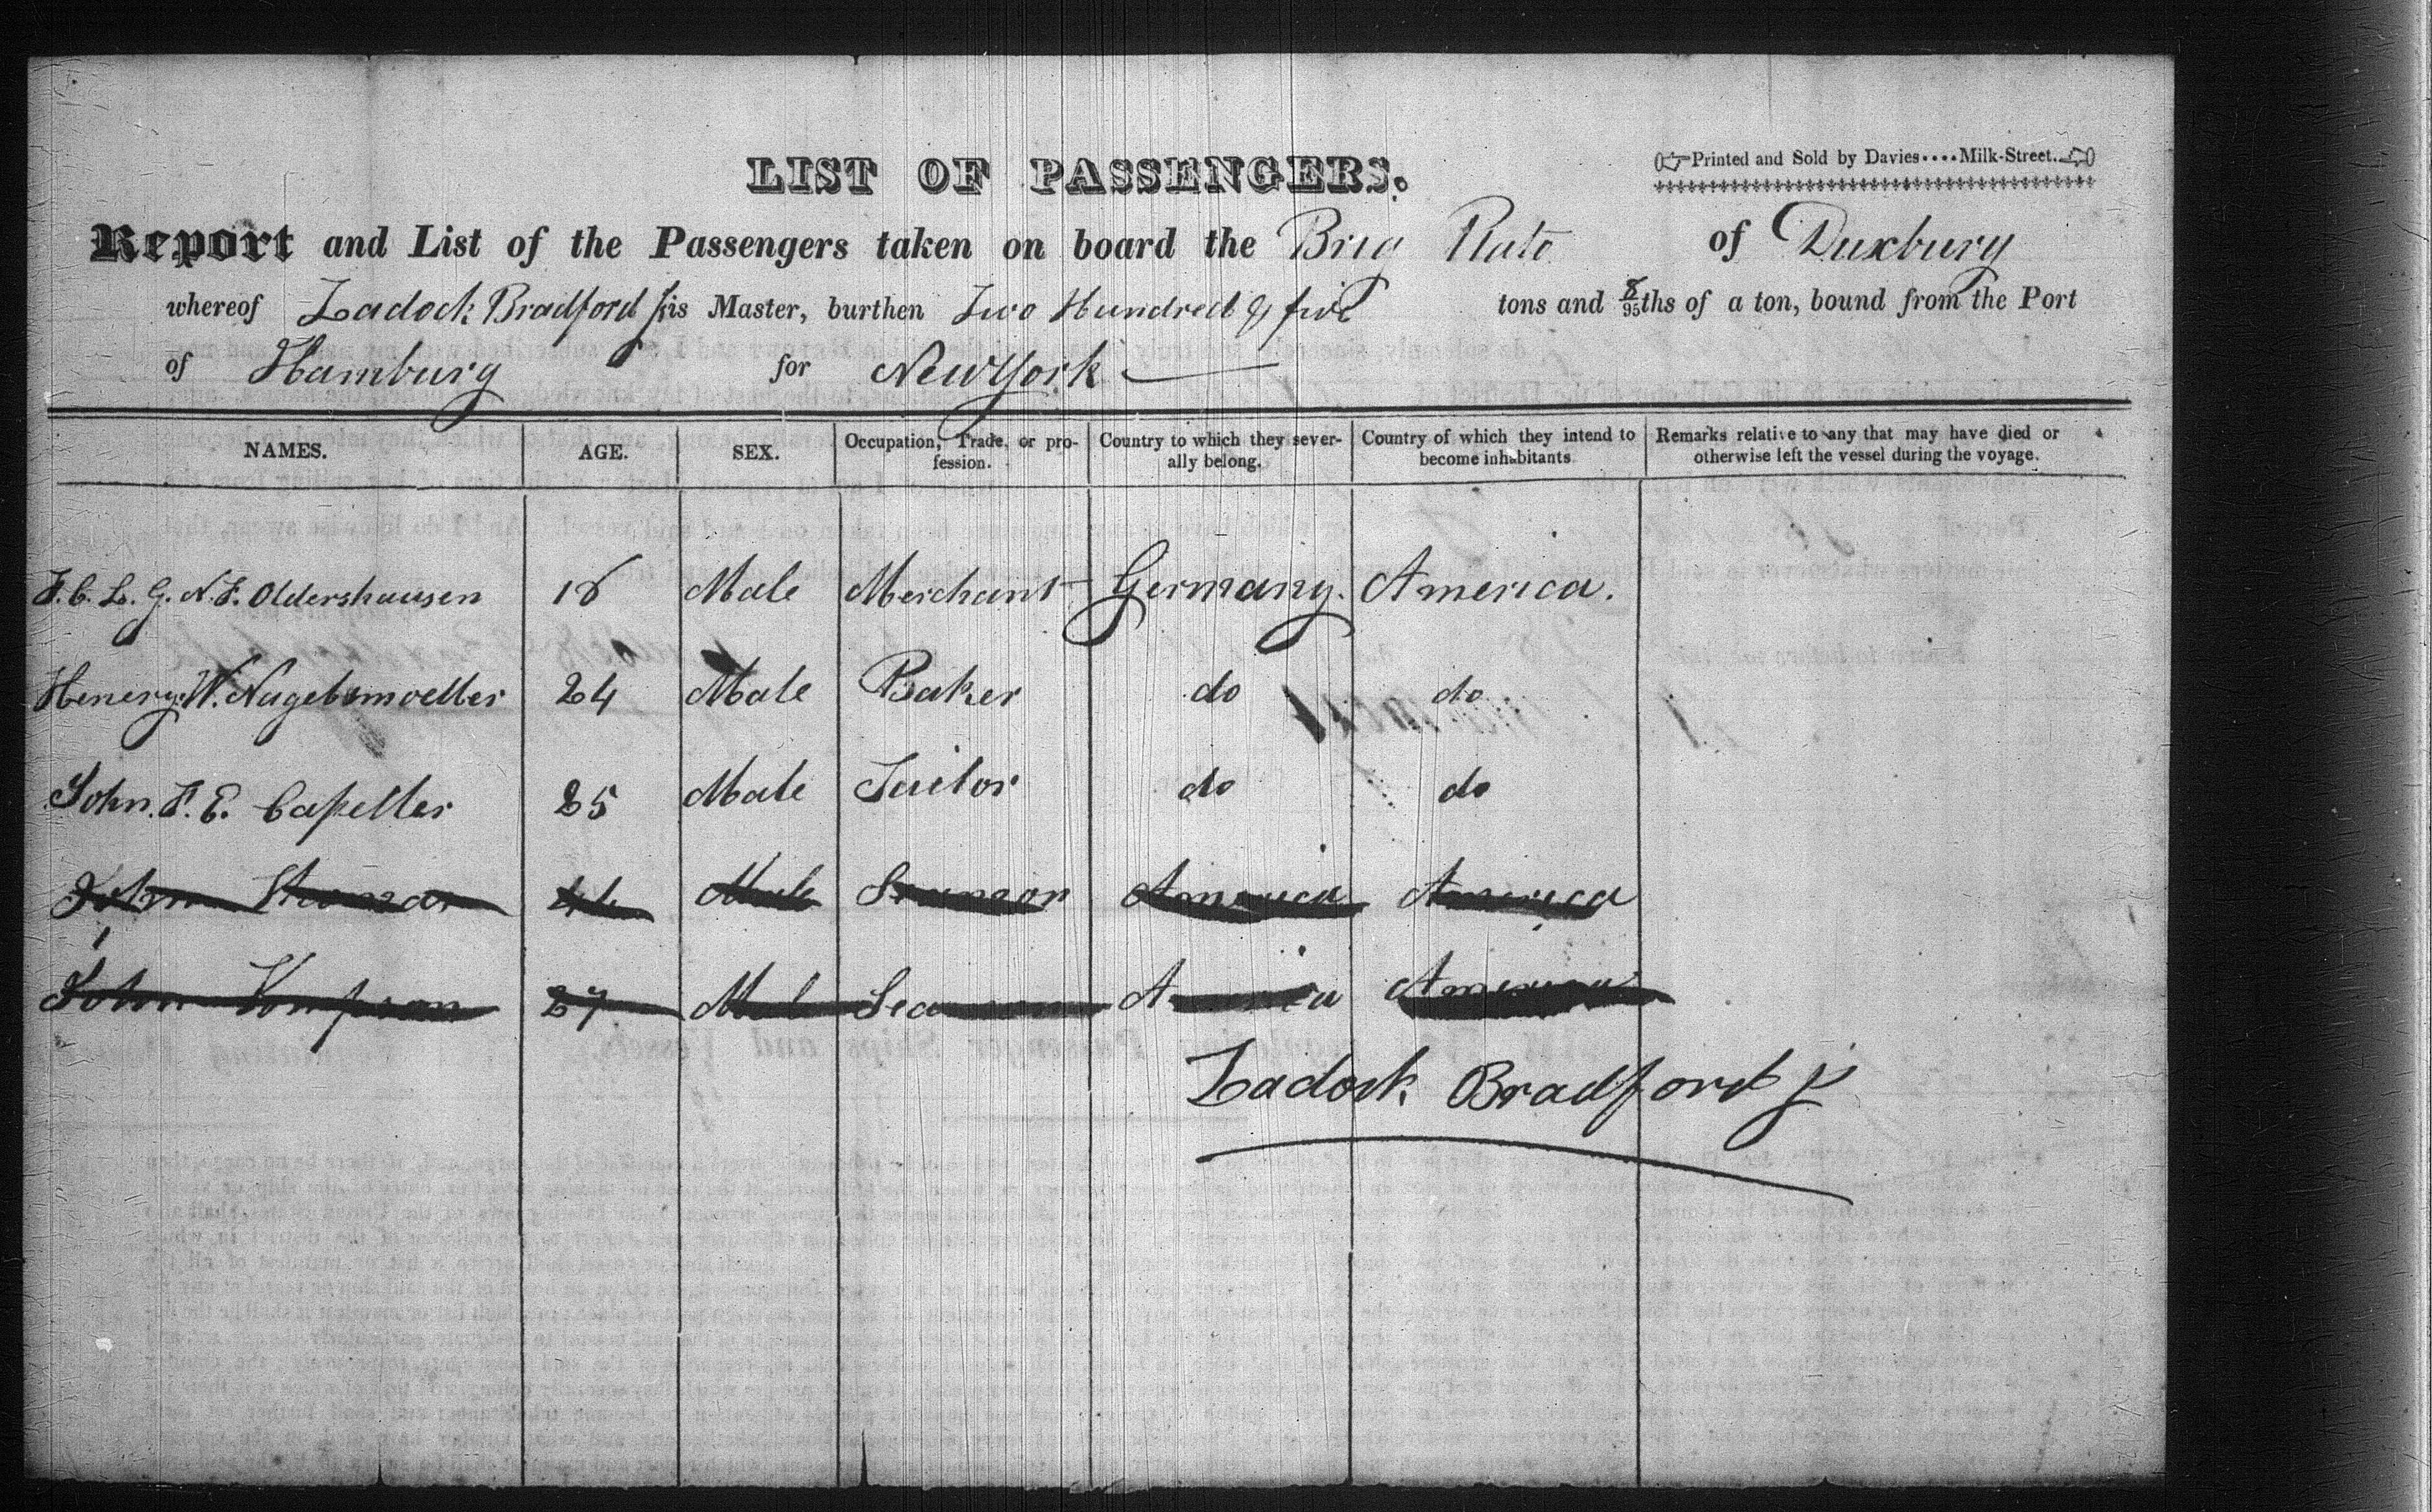 LIST OF PASSENGERS.
Printed and Sold by Davies....Milk-Street.
Report and List of the Passengers taken on board the Brig Pluto of Duxbury
whereof Zadock Bradford Jr is Master, burthen Two Hundred & five tons and 8/95ths of a ton, bound from the Port
of Hamburg for New York
NAMES. AGE. SEX. Occupation, Trade, or profession. Country to which they severally belong. Country of which they intend to become inhabitants Remarks relative to any that may have died or otherwise left the vessel during the voyage.
F. C. L. G. N. F. Oldershausen 18 Male Merchant Germany. America.
Henery W. Nagelsmoeller 24 Male Baker do do
John. F. E. Capeller 25 Male Tailor do do
John Male Seaman America America
John 27 Male Seaman America America
Zadock Bradford Jr